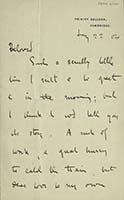 TRINITY COLLEGE,
CAMBRIDGE.
Aug 22
Beloved
Such a scrubby little
line I sent to greet
in the morning; but
I think it will tell you
its story. A rush of
work, a great hurry
to catch the train, but
dear love to my own